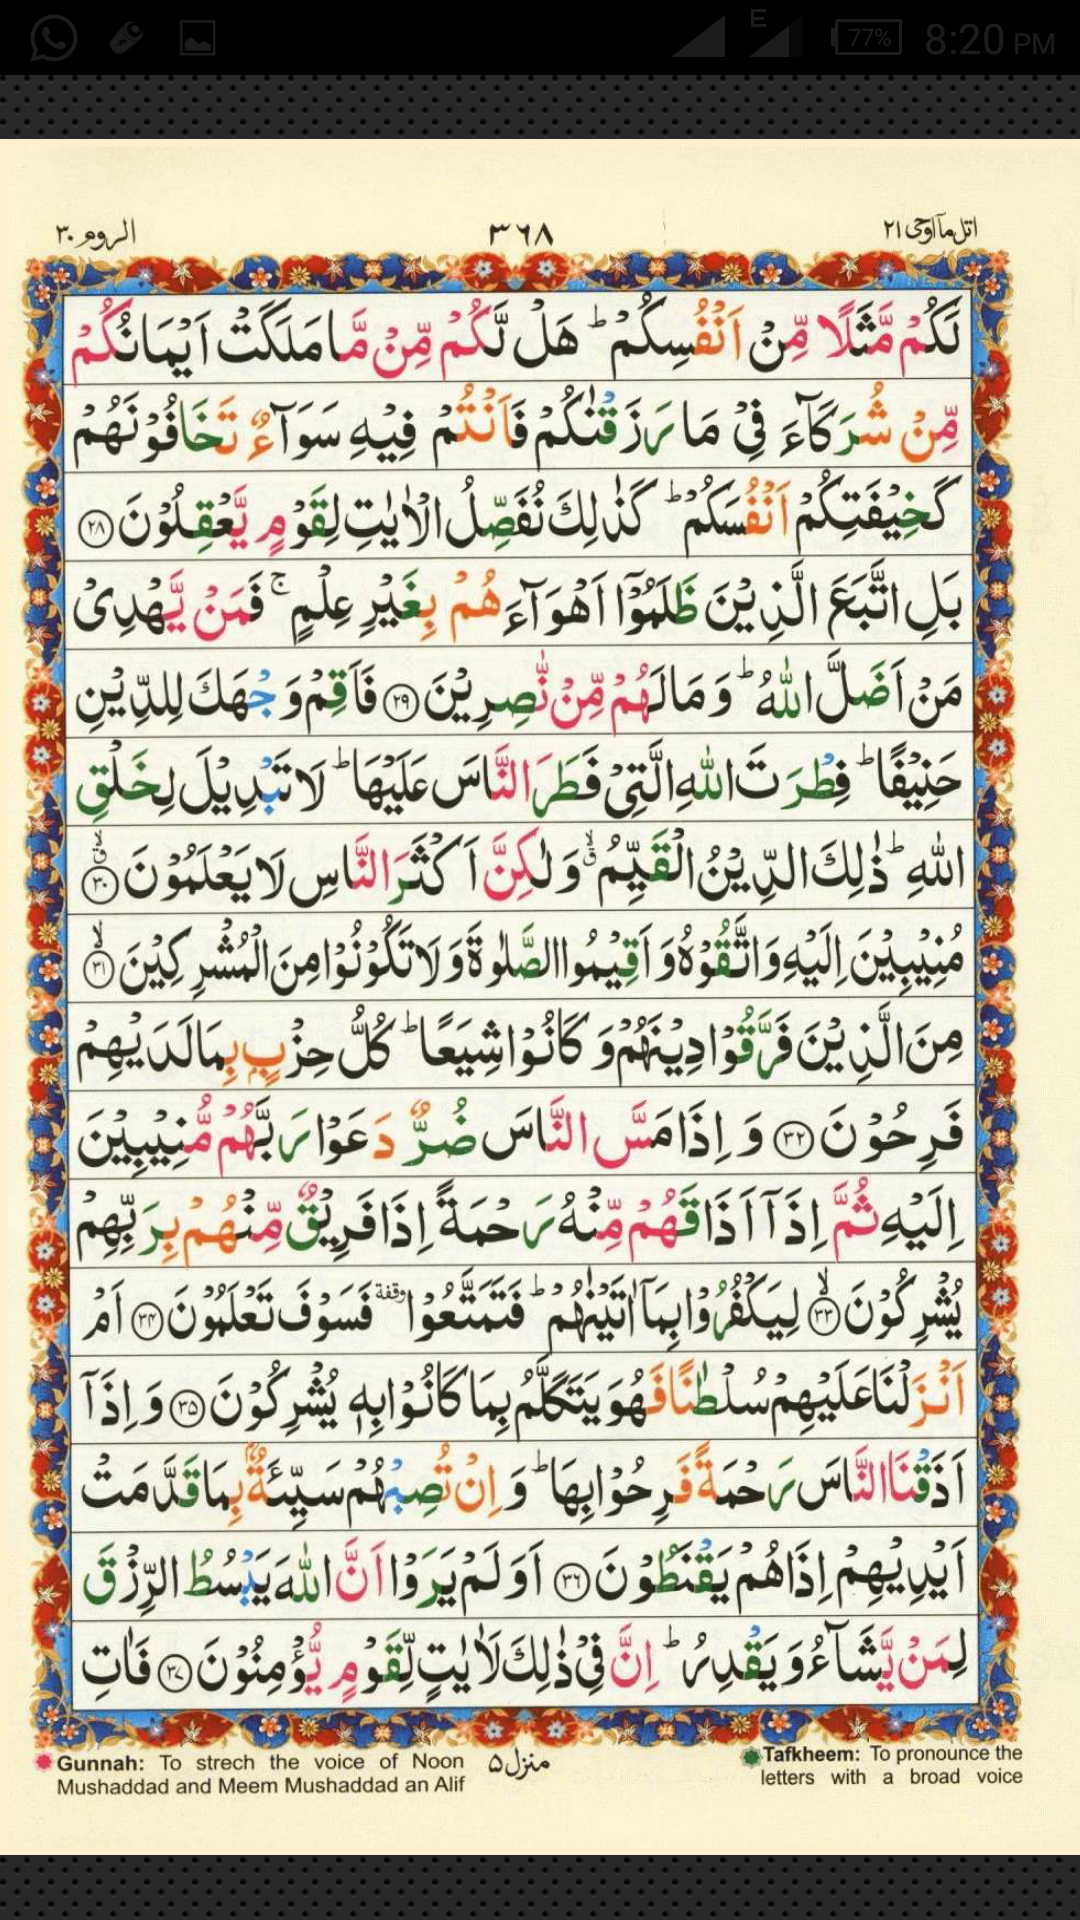 77% 8:20 PM
E
اتل مآاوحی ۲۱
۳۶۸
الروم ۳۰
لَكُمْ مَّثَلًا مِّنْ اَنْفُسِكُمْ ؕ هَلْ لَّكُمْ مِّنْ مَّا مَلَكَتْ اَيْمَانُكُمْ
مِّنْ شُرَكَآءَ فِيْ مَا رَزَقْنٰكُمْ فَاَنْتُمْ فِيْهِ سَوَآءٌ تَخَافُوْنَهُمْ
كَخِيْفَتِكُمْ اَنْفُسَكُمْ ؕ كَذٰلِكَ نُفَصِّلُ الْاٰيٰتِ لِقَوْمٍ يَّعْقِلُوْنَ ۲۸
بَلِ اتَّبَعَ الَّذِيْنَ ظَلَمُوْۤا اَهْوَآءَهُمْ بِغَيْرِ عِلْمٍ ۚ فَمَنْ يَّهْدِيْ
مَنْ اَضَلَّ اللّٰهُ ؕ وَمَا لَهُمْ مِّنْ نّٰصِرِيْنَ ۲۹ فَاَقِمْ وَجْهَكَ لِلدِّيْنِ
حَنِيْفًا ؕ فِطْرَتَ اللّٰهِ الَّتِيْ فَطَرَ النَّاسَ عَلَيْهَا ؕ لَا تَبْدِيْلَ لِخَلْقِ
اللّٰهِ ؕ ذٰلِكَ الدِّيْنُ الْقَيِّمُ ۙ وَلٰكِنَّ اَكْثَرَ النَّاسِ لَا يَعْلَمُوْنَ ۳۰
مُنِيْبِيْنَ اِلَيْهِ وَاتَّقُوْهُ وَاَقِيْمُوا الصَّلٰوةَ وَلَا تَكُوْنُوْا مِنَ الْمُشْرِكِيْنَ ۙ ۳۱
مِنَ الَّذِيْنَ فَرَّقُوْا دِيْنَهُمْ وَكَانُوْا شِيَعًا ؕ كُلُّ حِزْبٍۭ بِمَا لَدَيْهِمْ
فَرِحُوْنَ ۳۲ وَاِذَا مَسَّ النَّاسَ ضُرٌّ دَعَوْا رَبَّهُمْ مُّنِيْبِيْنَ
اِلَيْهِ ثُمَّ اِذَاۤ اَذَاقَهُمْ مِّنْهُ رَحْمَةً اِذَا فَرِيْقٌ مِّنْهُمْ بِرَبِّهِمْ
يُشْرِكُوْنَ ۙ ۳۳ لِيَكْفُرُوْا بِمَاۤ اٰتَيْنٰهُمْ ؕ فَتَمَتَّعُوْا وقفة فَسَوْفَ تَعْلَمُوْنَ ۳۴ اَمْ
اَنْزَلْنَا عَلَيْهِمْ سُلْطٰنًا فَهُوَ يَتَكَلَّمُ بِمَا كَانُوْا بِهٖ يُشْرِكُوْنَ ۳۵ وَاِذَاۤ
اَذَقْنَا النَّاسَ رَحْمَةً فَرِحُوْا بِهَا ؕ وَاِنْ تُصِبْهُمْ سَيِّئَةٌۢ بِمَا قَدَّمَتْ
اَيْدِيْهِمْ اِذَا هُمْ يَقْنَطُوْنَ ۳۶ اَوَلَمْ يَرَوْا اَنَّ اللّٰهَ يَبْسُطُ الرِّزْقَ
لِمَنْ يَّشَآءُ وَيَقْدِرُ ؕ اِنَّ فِيْ ذٰلِكَ لَاٰيٰتٍ لِّقَوْمٍ يُّؤْمِنُوْنَ ۳۷ فَاٰتِ
Gunnah: To strech the voice of Noon
Mushaddad and Meem Mushaddad an Alif
منزل ۵
Tafkheem: To pronounce the
letters with a broad voice